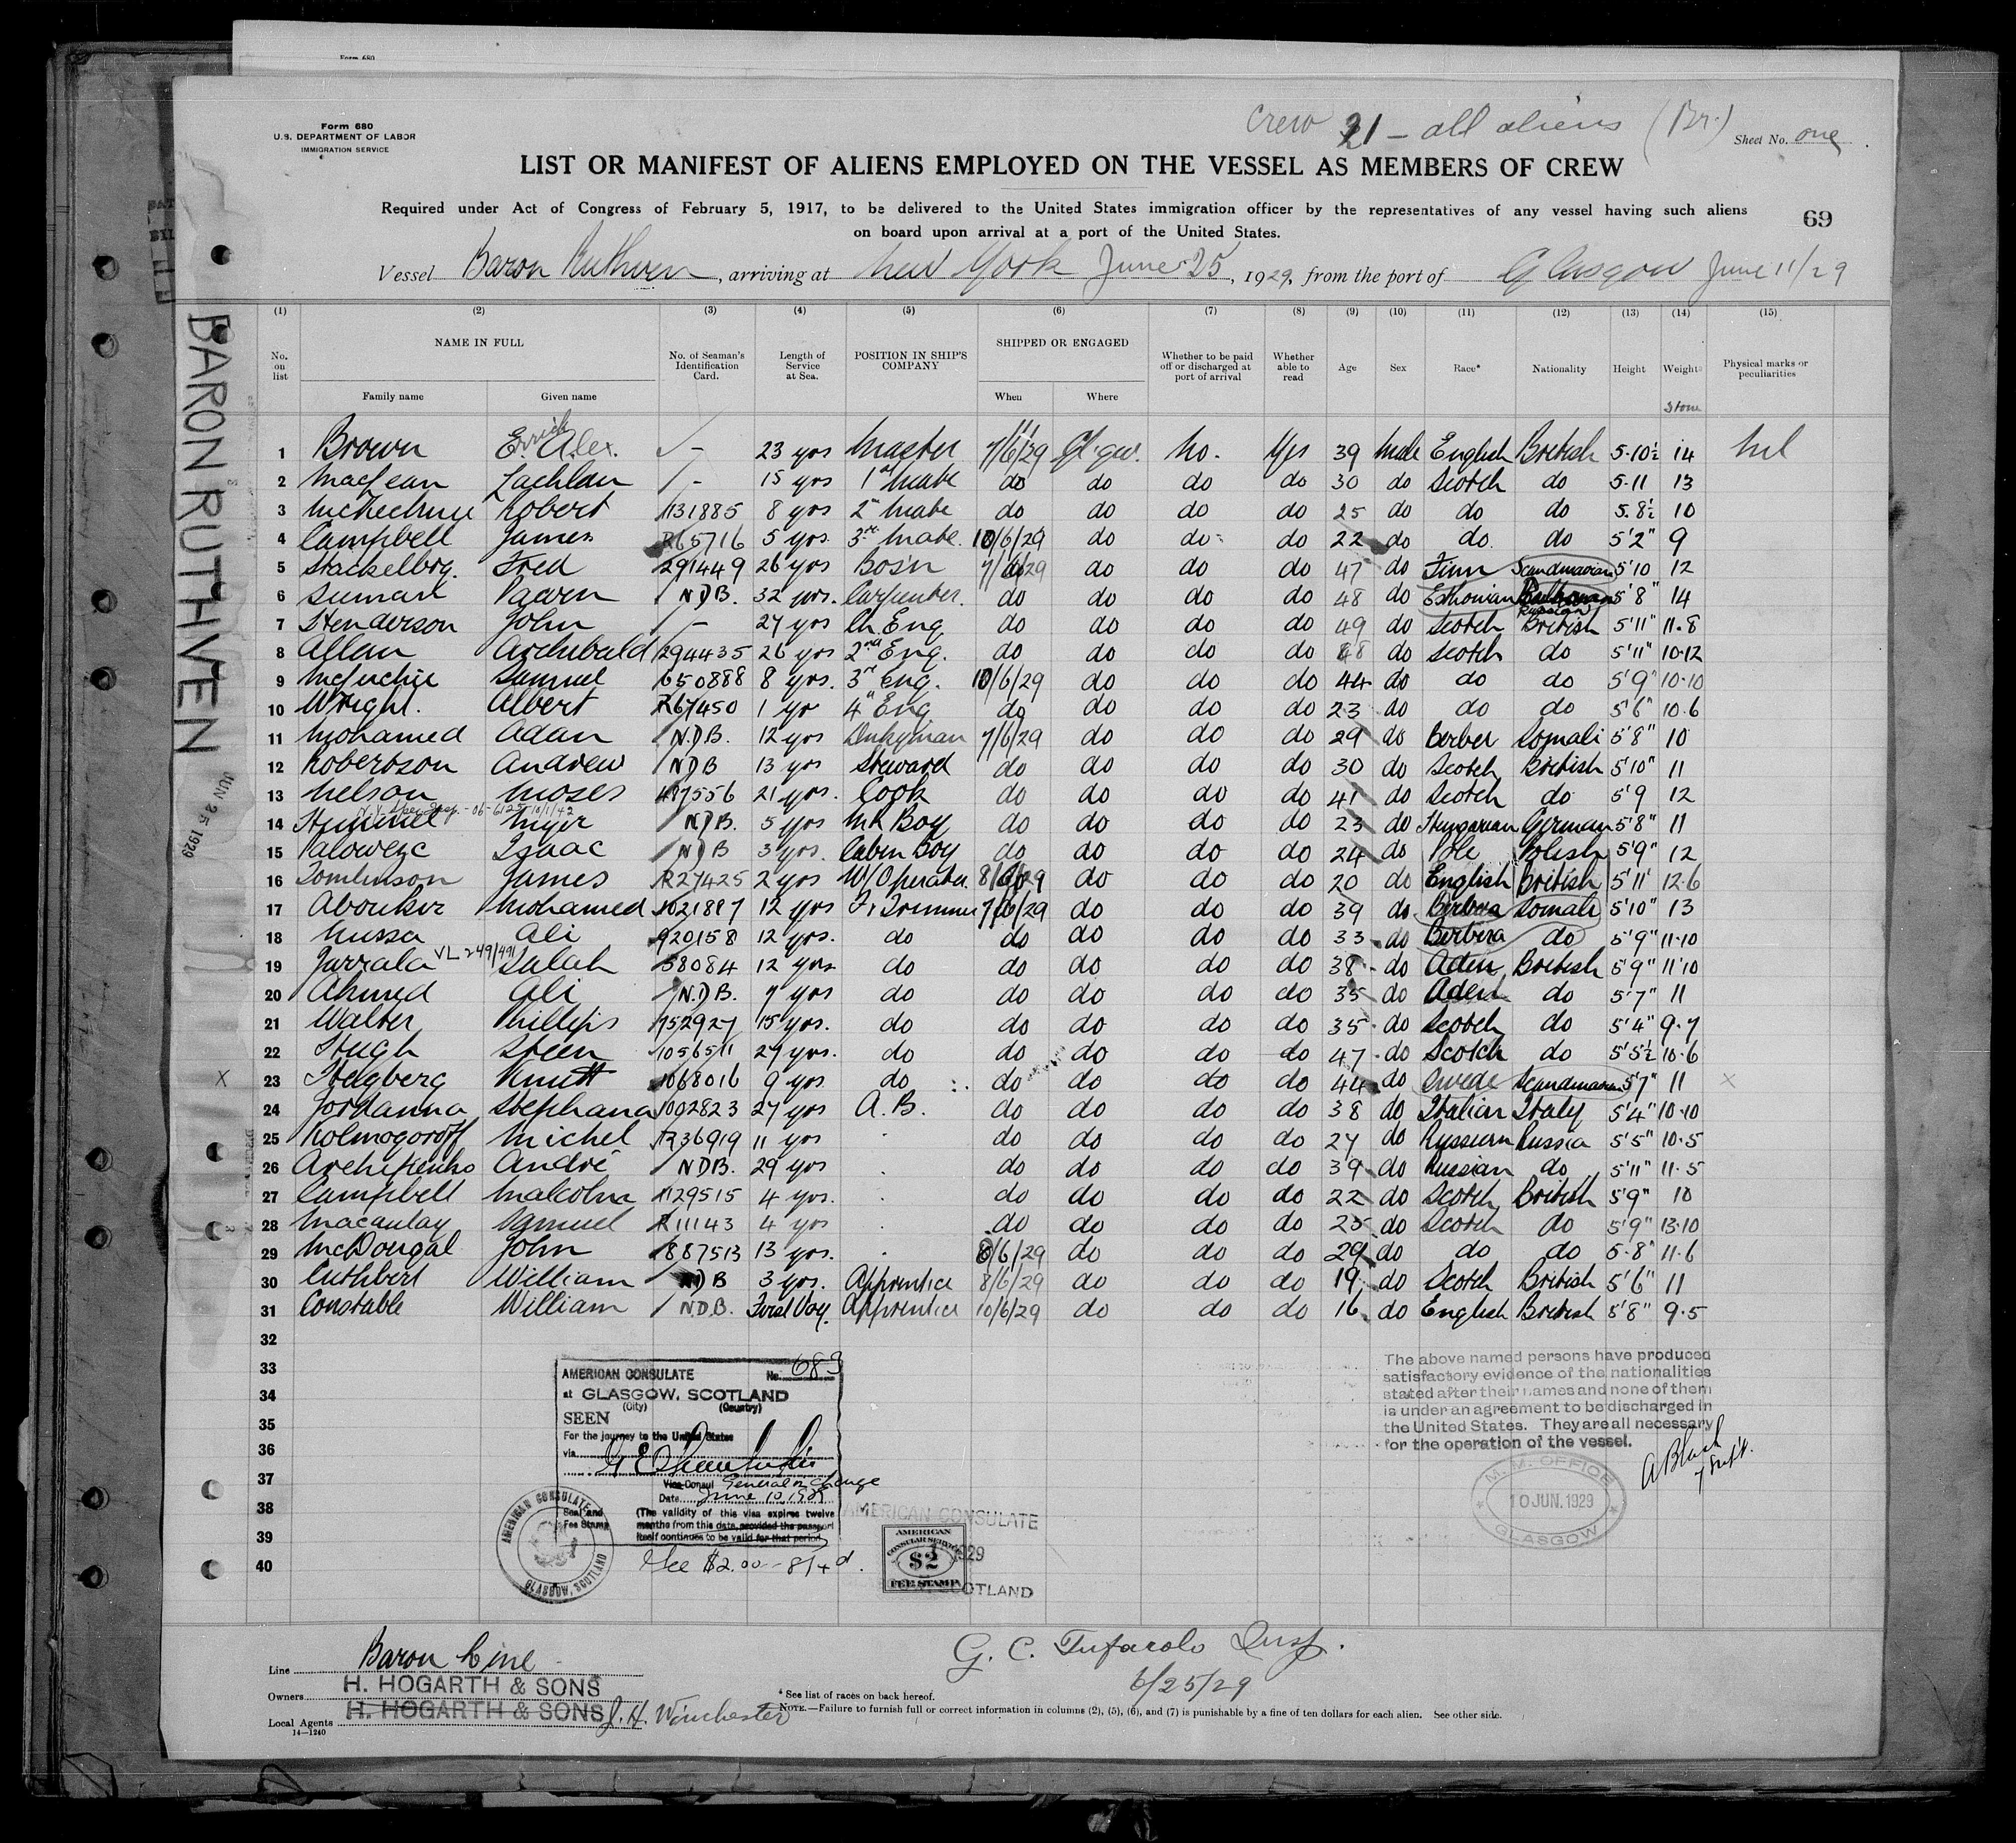 Form 680
Form 680
U.S. DEPARTMENT OF LABOR
IMMIGRATION SERVICE
Crew 31 – all aliens (Br.)
Sheet No. one
LIST OR MANIFEST OF ALIENS EMPLOYED ON THE VESSEL AS MEMBERS OF CREW
Required under Act of Congress of February 5, 1917, to be delivered to the United States immigration officer by the representatives of any vessel having such aliens
on board upon arrival at a port of the United States.
69
Vessel Baron Ruthven, arriving at New York June 25, 1929, from the port of Glasgow June 11/29
BARON RUTHVEN
JUN 25 1929
(1) (2) (3) (4) (5) (6) (7) (8) (9) (10) (11) (12) (13) (14) (15)
No. on list NAME IN FULL Family name Given name No. of Seaman's Identification Card. Length of Service at Sea. POSITION IN SHIP'S COMPANY SHIPPED OR ENGAGED When Where Whether to be paid off or discharged at port of arrival Whether able to read Age Sex Race* Nationality Height Weight Stone Physical marks or peculiarities
1 Brown Alex. – 23 yrs Master 7/6/29 Gl'gow. No. Yes 39 Male English British 5-10½ 14 Nil
2 MacLean Lachlan – 15 yrs 1st Mate do do do do 30 do Scotch do 5-11 13
3 McKechnie Robert 1131885 8 yrs 2nd Mate do do do do 25 do do do 5.8½ 10
4 Campbell James R65716 5 yrs. 3rd Mate. 10/6/29 do do do 22 do do. do 5'2" 9
5 Fred 291449 26 yrs Bos'n 7/6/29 do do do 47 do Finn Scandinavian 5'10 12
6 N.D.B. 32 yrs. Carpenter. do do do do 48 do Esthonian Russian 5'8" 14
7 Henderson John – 27 yrs Ch Eng do do do do 49 do Scotch British 5'11" 11-8
8 Allan Archibald 294435 26 yrs 2nd Eng. do do do do 48 do Scotch do 5'11" 10-12
9 Samuel 650888 8 yrs. 3rd Eng. 10/6/29 do do do 44 do do do 5'9" 10-10
10 Wright. Albert R67450 1 yr 4th Eng do do do do 23 do do do 5'6" 10.6
11 Mohamed Adan N.D.B. 12 yrs Dnkyman 7/6/29 do do do 29 do Berber Somali 5'8" 10
12 Robertson Andrew N.D.B 13 yrs Steward do do do do 30 do Scotch British 5'10" 11
13 Nelson Moses 487556 21 yrs. Cook do do do do 41 do Scotch do 5'9 12
14 Myer N.D.B. 5 yrs Boy do do do do 23 do Hungarian German 5'8" 11
15 Isaac N.D.B 3 yrs. Cabin Boy do do do do 24 do Pole Polish 5'9" 12
16 Tomlinson James R27425 2 yrs W/Operator. 8/6/29 do do do 20 do English British 5'11' 12.6
17 Aboukir Mohamed 1021887 12 yrs Fr Trimmer 7/6/29 do do do 39 do. Berbera Somali 5'10" 13
18 Mussa Ali 920158 12 yrs. do do do do do 33 do Berbera do 5'9" 11-10
19 Jurrala VL 249/491 Salah 58084 12 yrs do do do do do 38 do Aden British 5'9" 11'10
20 Ahmed Ali N.D.B. 7 yrs do do do do do 35 do Aden do 5'7" 11
21 Walter Phillips 752927 15 yrs. do do do do do 35 do Scotch do 5'4" 9.7
22 Hugh Steen 1056511 27 yrs. do do do do do 47 do Scotch do 5'5½ 10.6
X 23 Hegberg Knutt 1068016 9 yrs do do do do do 44 do Swede Scandinavian 5'7" 11 X
24 Jordanna Stephana 1002823 27 yrs A.B. do do do do 38 do Italian Italy 5'4" 10-10
25 Kolmogoroff Michel R36919 11 yrs do do do do 27 do Russian Russia 5'5" 10.5
26 Archipenko André N.D.B. 29 yrs do do do do 39 do Russian do 5'11" 11.5
27 Campbell Malcolm 1129515 4 yrs. do do do do 22 do Scotch British 5'9" 10
28 Macaulay Samuel R11143 4 yrs do do do do 25 do Scotch do 5'9" 13-10
29 McDougal John 887513 13 yrs. 8/6/29 do do do 29 do do do 5-8" 11.6
30 Cuthbert William N.D.B 3 yrs. Apprentice 8/6/29 do do do 19 do Scotch British 5'6" 11
31 Constable William N.D.B. First Voy. Apprentice 10/6/29 do do do 16 do English British 5'8" 9.5
32
33
34
35
36
37
38
39
40
AMERICAN CONSULATE No. 683
at GLASGOW, SCOTLAND
(City) (Country)
SEEN
For the journey to the United States
via
Vice Consul General in charge
Date June 10, 1929
Seal and Fee Stamp
(The validity of this visa expires twelve
months from this date, provided the passport
itself continues to be valid for that period
AMERICAN CONSULATE GLASGOW, SCOTLAND
Fee $2.00 – 8/4d.
AMERICAN CONSULATE
AMERICAN CONSULAR SERVICE $2 FEE STAMP
1929
SCOTLAND
The above named persons have produced
satisfactory evidence of the nationalities
stated after their names and none of them
is under an agreement to be discharged in
the United States. They are all necessary
for the operation of the vessel.
A Black
M. M. OFFICE
10 JUN. 1929
GLASGOW
Line Baron Line
Owners H. HOGARTH & SONS
Local Agents H. HOGARTH & SONS J. H. Winchester
14—1240
G. C. Tufarolo Insp.
6/25/29
* See list of races on back hereof.
NOTE.—Failure to furnish full or correct information in columns (2), (5), (6), and (7) is punishable by a fine of ten dollars for each alien. See other side.